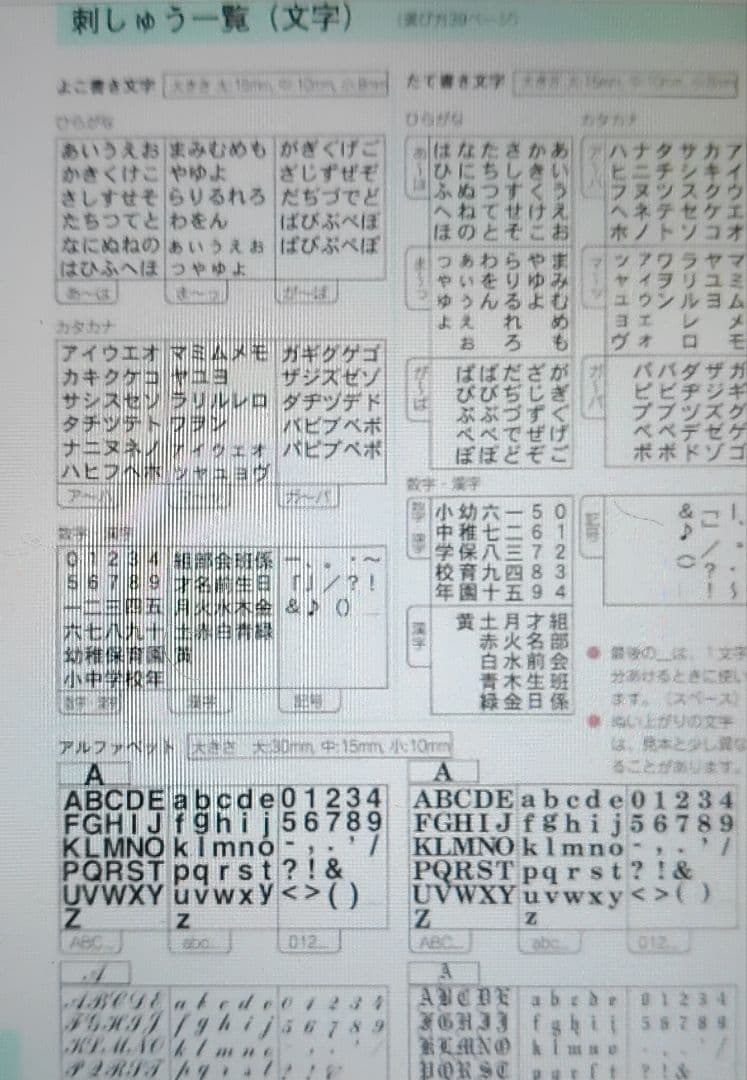 刺しゅう一覧（文字）
（選び方39ページ）
よこ書き文字 大きさ 大:15mm, 中:10mm, 小:8mm
ひらがな
あいうえお まみむめも がぎぐげご
かきくけこ やゆよ ざじずぜぞ
さしすせそ らりるれろ だぢづでど
たちつてと わをん ばびぶべぼ
なにぬねの ぁぃぅぇぉ ぱぴぷぺぽ
はひふへほ っゃゅょ
あ～は ま～っ が～ぱ
カタカナ
アイウエオ マミムメモ ガギグゲゴ
カキクケコ ヤユヨ ザジズゼゾ
サシスセソ ラリルレロ ダヂヅデド
タチツテト ワヲン バビブベボ
ナニヌネノ ァィゥェォ パピプペポ
ハヒフヘホ ッャュョヴ
ア～ハ マ～ッ ガ～パ
数字・漢字
01234 組部会班係 ー、。・～
56789 才名前生日 「」／？！
一二三四五 月火水木金 &♪()
六七八九十 土赤白青緑
幼稚保育園 黄
小中学校年
数字・漢字 漢字 記号
たて書き文字 大きさ 大:15mm, 中:10mm, 小:8mm
ひらがな
あ～は
あいうえお
かきくけこ
さしすせそ
たちつてと
なにぬねの
はひふへほ
ま～っ
まみむめも
やゆよ
らりるれろ
わをん
ぁぃぅぇぉ
っゃゅょ
が～ぱ
がぎぐげご
ざじずぜぞ
だぢづでど
ばびぶべぼ
ぱぴぷぺぽ
カタカナ
ア～ハ
アイウエオ
カキクケコ
サシスセソ
タチツテト
ナニヌネノ
ハヒフヘホ
マ～ッ
マミムメモ
ヤユヨ
ラリルレロ
ワヲン
ァィゥェォ
ッャュョヴ
ガ～パ
ガギグゲゴ
ザジズゼゾ
ダヂヅデド
バビブベボ
パピプペポ
数字・漢字
数字・漢字
01234
56789
一二三四五
六七八九十
幼稚保育園
小中学校年
漢字
組部会班係
才名前生日
月火水木金
土赤白青緑
黄
記号
｜、。・～
「」／？！
&♪()
● 最後の＿は、1文字
分あけるときに使い
ます。（スペース）
● ぬい上がりの文字
は、見本と少し異な
ることがあります。
アルファベット 大きさ 大:30mm, 中:15mm, 小:10mm
A
ABCDE abcde 01234
FGHIJ fghij 56789
KLMNO klmno -,.'/
PQRST pqrst ?!&
UVWXY uvwxy <>()
Z z
ABC... abc... 012...
A
ABCDE abcde 01234
FGHIJ fghij 56789
KLMNO klmno -,.'/
PQRST pqrst ?!&
UVWXY uvwxy <>()
Z z
ABC... abc... 012...
A
ABCDE abcde 01234
FGHIJ fghij 56789
KLMNO klmno -,.'/
PQRST pqrst ?!&
A
ABCDE abcde 01234
FGHIJ fghij 56789
KLMNO klmno -,.'/
PQRST pqrst ?!&